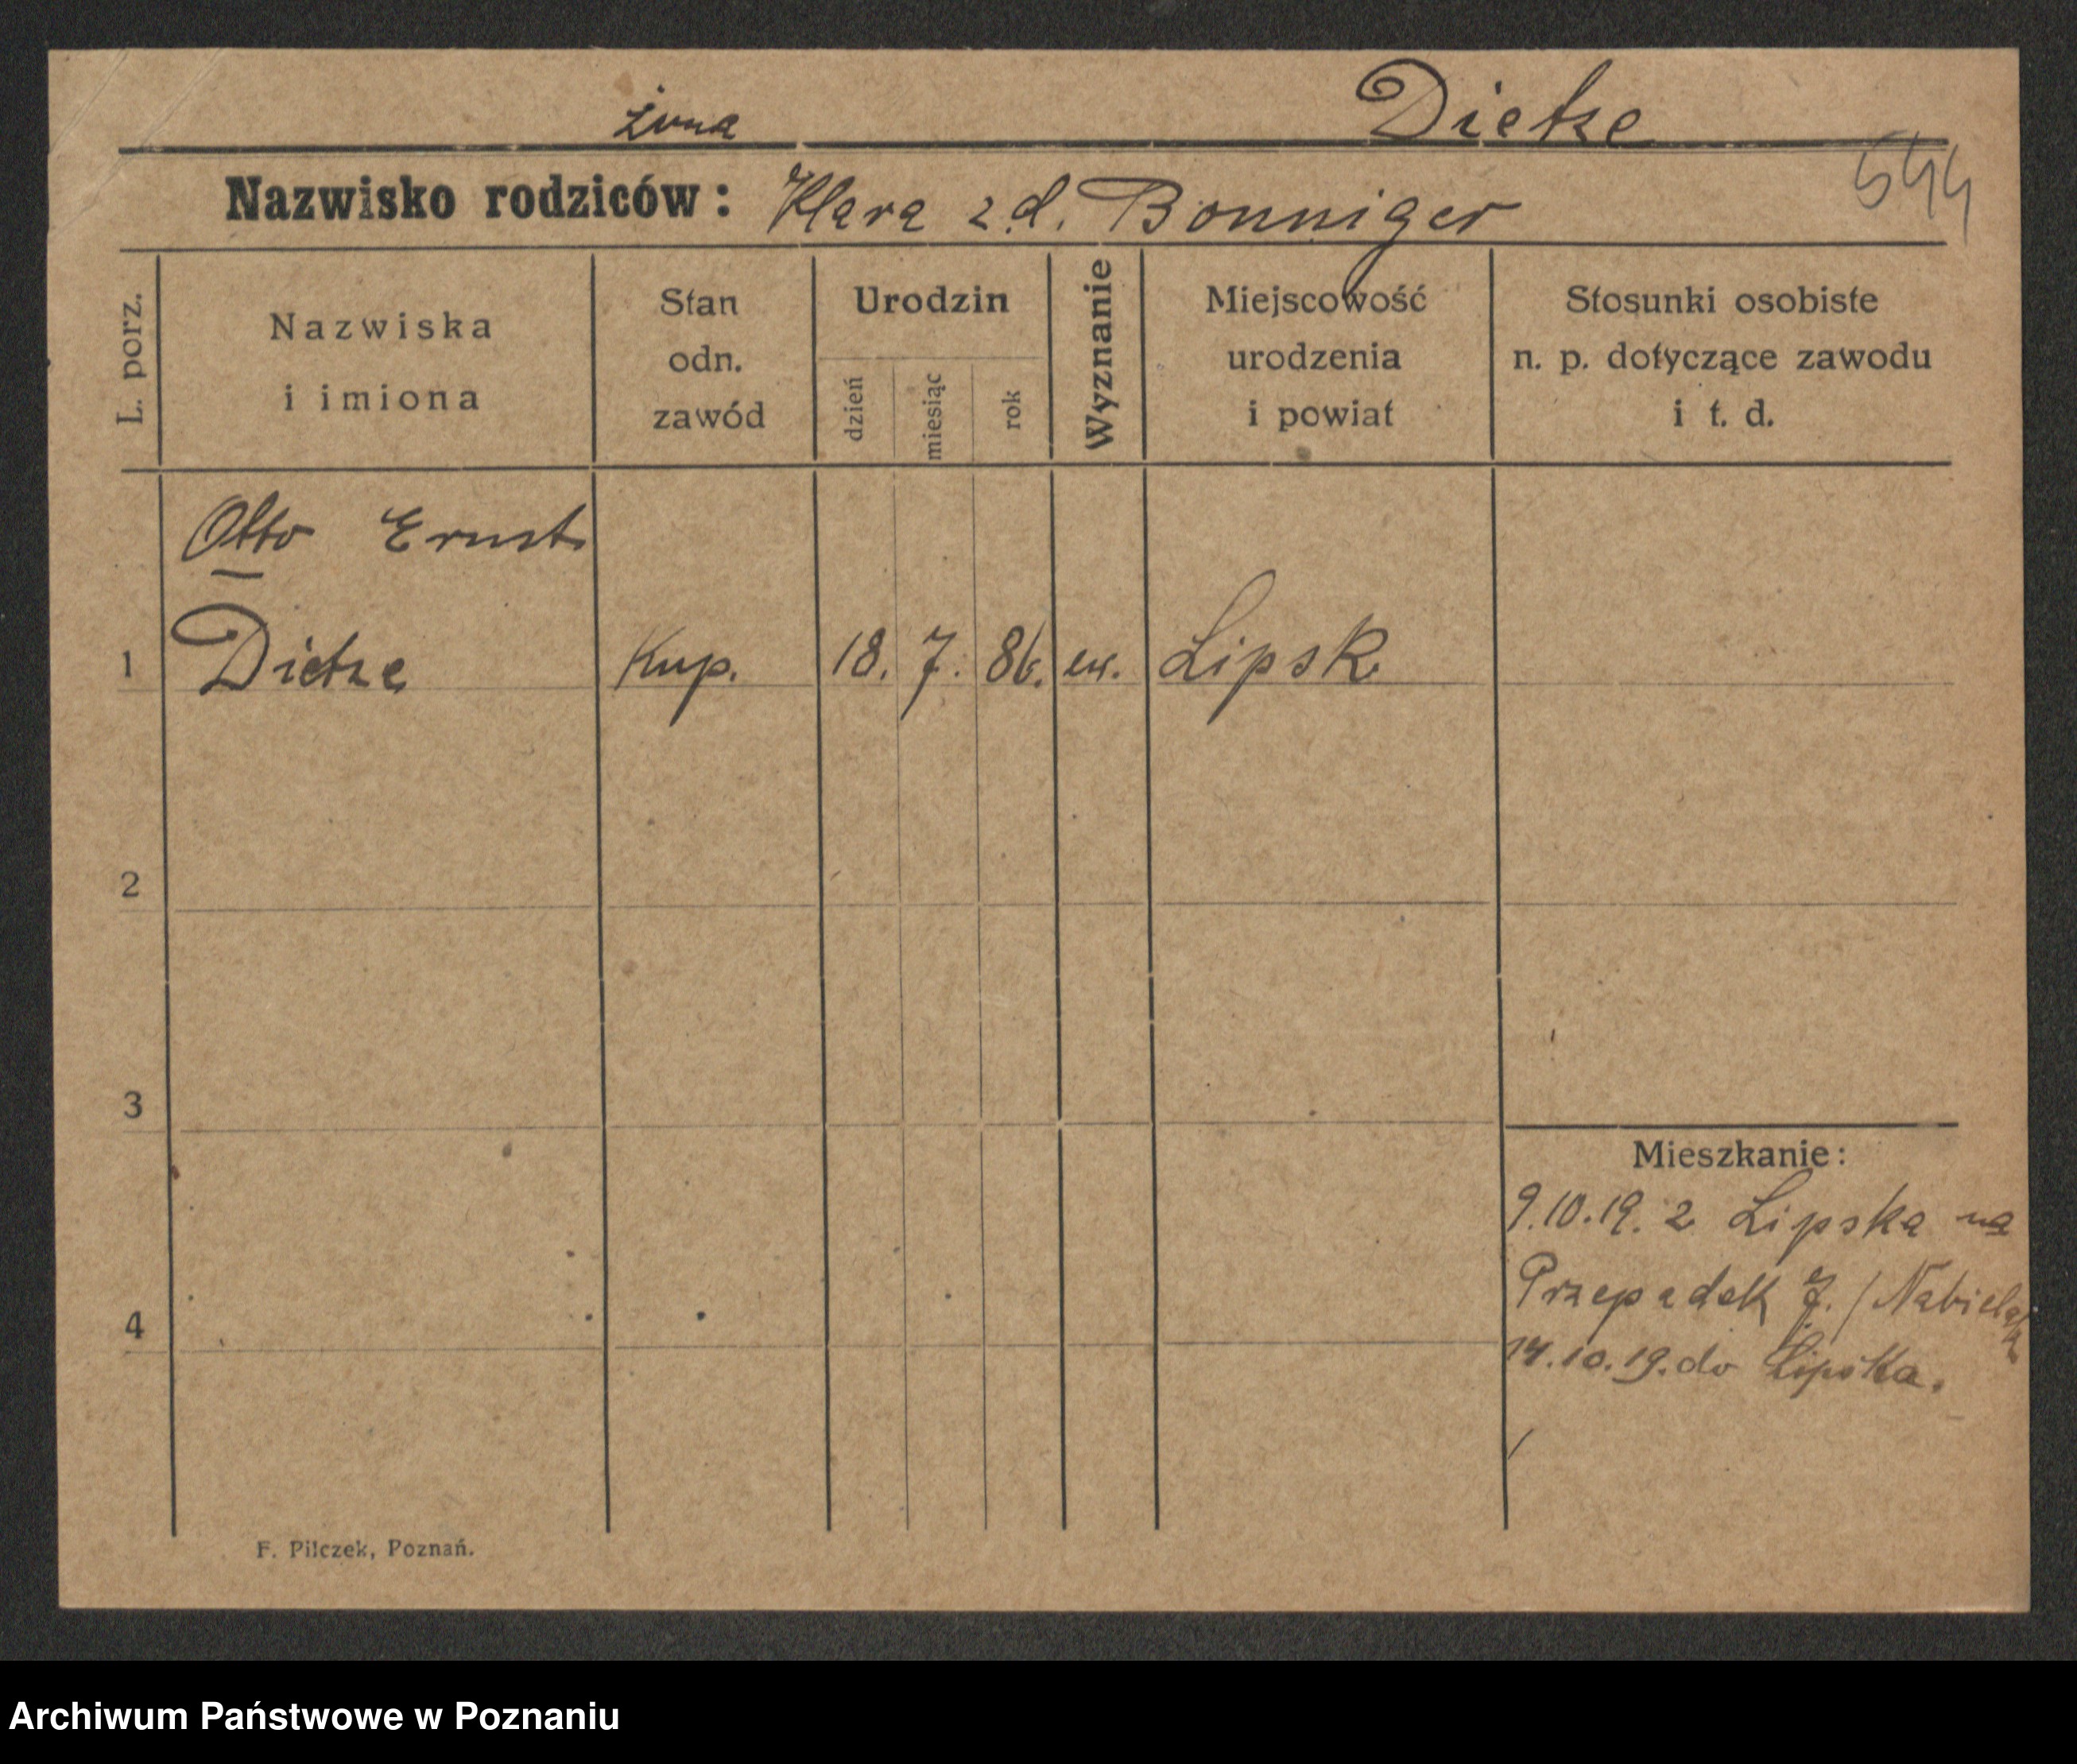 żona Dietze
544
Nazwisko rodziców: Klara z d. Bonniger
L. porz.
Nazwiska
i imiona
Stan
odn.
zawód
Urodzin
dzień
miesiąc
rok
Wyznanie
Miejscowość
urodzenia
i powiat
Stosunki osobiste
n. p. dotyczące zawodu
i t. d.
Otto Ernst
1 Dietze Kup. 18. 7. 86. ew. Lipsk
2
3
Mieszkanie:
9.10.19. z Lipska na
Przepadek 7. /
4
14.10.19. do Lipska.
F. Pilczek, Poznań.
Archiwum Państwowe w Poznaniu